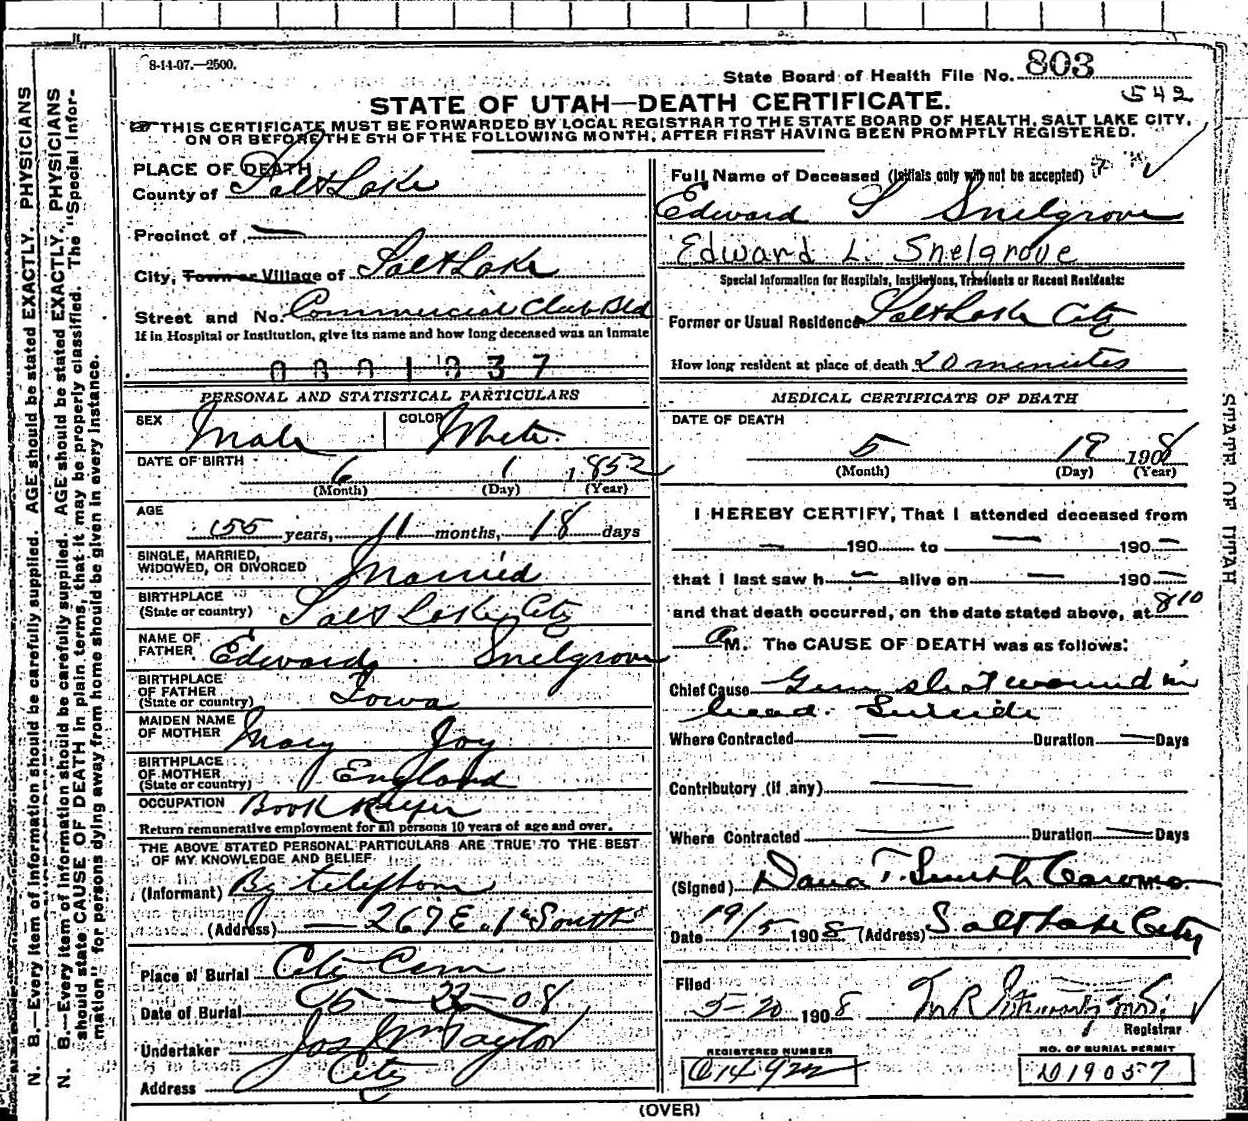 8-14-07.—2500.
State Board of Health File No. 803
542
STATE OF UTAH—DEATH CERTIFICATE.
THIS CERTIFICATE MUST BE FORWARDED BY LOCAL REGISTRAR TO THE STATE BOARD OF HEALTH, SALT LAKE CITY,
ON OR BEFORE THE 5TH OF THE FOLLOWING MONTH, AFTER FIRST HAVING BEEN PROMPTLY REGISTERED.
PLACE OF DEATH
County of Salt Lake
Precinct of —
City, Town or Village of Salt Lake
Street and No. Commercial Club Bld
If in Hospital or Institution, give its name and how long deceased was an inmate
0001837
PERSONAL AND STATISTICAL PARTICULARS
SEX Male COLOR White
DATE OF BIRTH
6 1 1852
(Month) (Day) (Year)
AGE
55 years, 11 months, 18 days
SINGLE, MARRIED,
WIDOWED, OR DIVORCED Married
BIRTHPLACE
(State or country) Salt Lake City
NAME OF
FATHER Edward Snelgrove
BIRTHPLACE
OF FATHER
(State or country) Iowa
MAIDEN NAME
OF MOTHER Mary Joy
BIRTHPLACE
OF MOTHER
(State or country) England
OCCUPATION Book Keeper
Return remunerative employment for all persons 10 years of age and over.
THE ABOVE STATED PERSONAL PARTICULARS ARE TRUE TO THE BEST
OF MY KNOWLEDGE AND BELIEF
(Informant) By telephone
(Address) — 269 E 1st South
Place of Burial City Cem
Date of Burial 05—22—08
Undertaker Jos Wm Taylor
Address City
Full Name of Deceased (Initials only will not be accepted)
Edward L Snelgrove
Edward L. Snelgrove
Special Information for Hospitals, Institutions, Transients or Recent Residents:
Former or Usual Residence Salt Lake City
How long resident at place of death 20 minutes
MEDICAL CERTIFICATE OF DEATH
DATE OF DEATH
5 19 1908
(Month) (Day) (Year)
I HEREBY CERTIFY, That I attended deceased from
— 190 to — 190 —
that I last saw h — alive on — 190 —
and that death occurred, on the date stated above, at 8 10
a M. The CAUSE OF DEATH was as follows:
Chief Cause Gun shot wound in
head. Suicide
Where Contracted — Duration — Days
Contributory (if any) —
Where Contracted — Duration — Days
(Signed) Dana T. Smith Coroner M.D.
Date 19/5 1908 (Address) Salt Lake City
Filed
5-20 1908
Registrar
REGISTERED NUMBER
NO. OF BURIAL PERMIT
D19057
(OVER)
N. B.—Every item of information should be carefully supplied. AGE should be stated EXACTLY. PHYSICIANS
N. B.—Every item of information should be carefully supplied. AGE should be stated EXACTLY. PHYSICIANS
should state CAUSE OF DEATH in plain terms, that it may be properly classified. The "Special Infor-
mation" for persons dying away from home should be given in every instance.
STATE OF UTAH